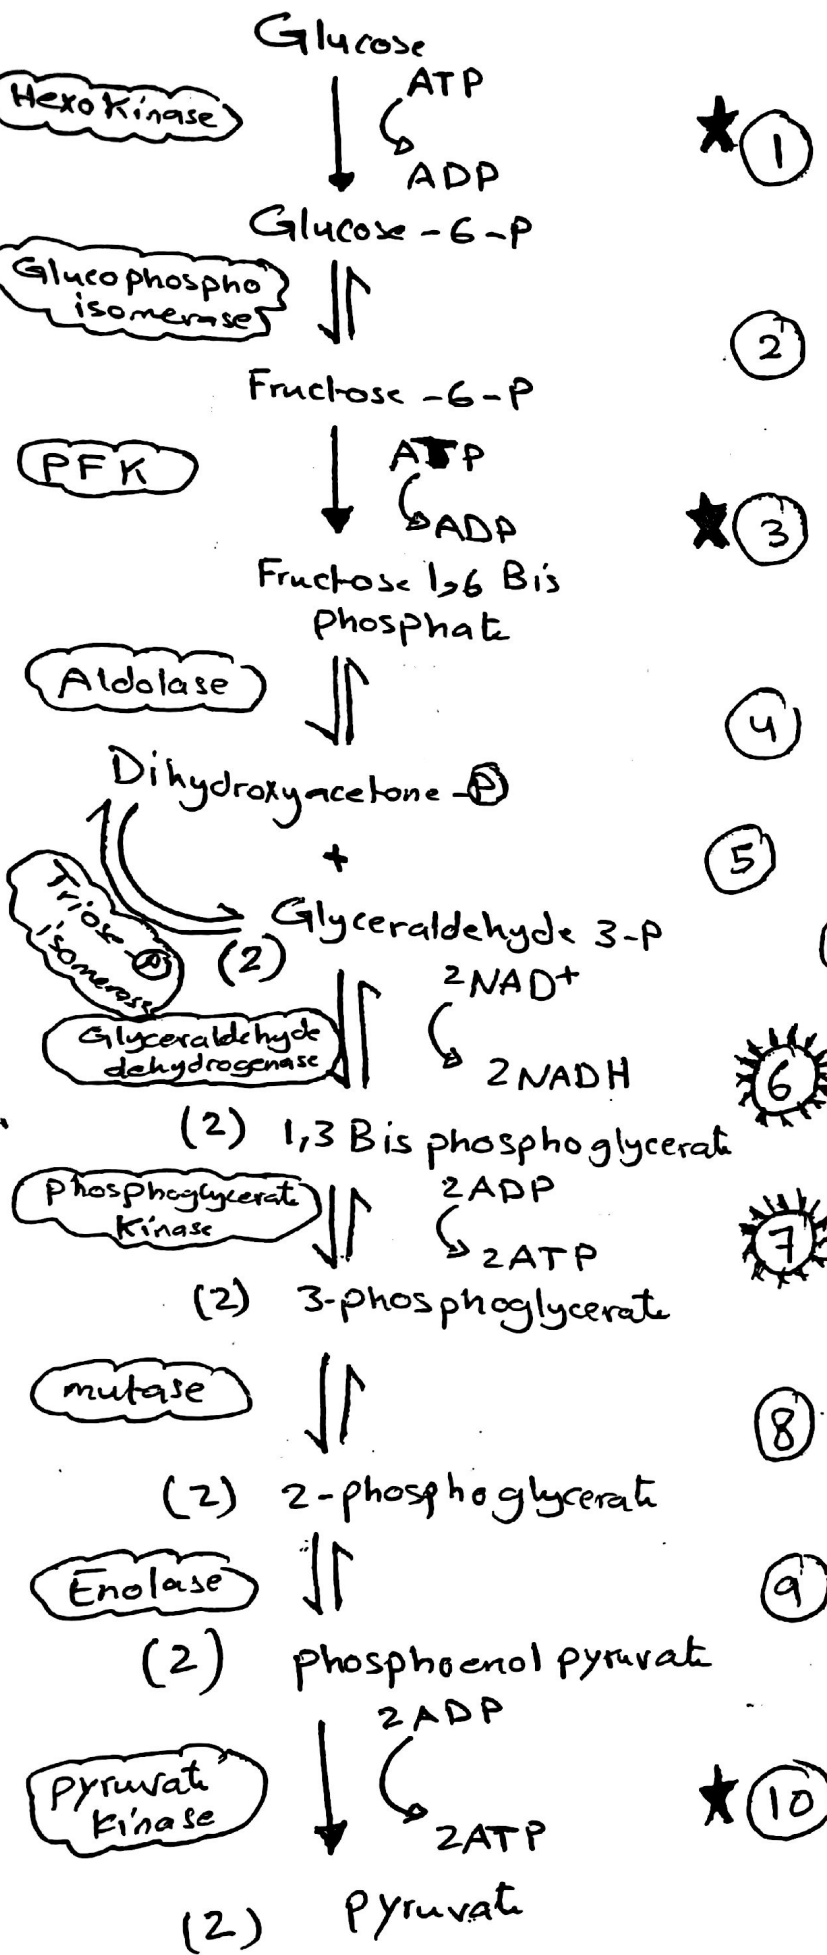 Glucose
ATP
Hexokinase
1
ADP
Glucose-6-P
Glucophospho
isomerase
2
Fructose-6-P
PFK
ATP
ADP
3
Fructose 1,6 Bis
phosphate
Aldolase
4
Dihydroxyacetone-P
+
5
Triose-P
isomerase
(2) Glyceraldehyde 3-P
2NAD+
Glyceraldehyde
dehydrogenase
2NADH
6
(2) 1,3 Bisphosphoglycerate
Phosphoglycerate
Kinase
2ADP
2ATP
7
(2) 3-phosphoglycerate
mutase
8
(2) 2-phosphoglycerate
Enolase
9
(2) phosphoenol pyruvate
2ADP
pyruvate
kinase
10
2ATP
(2) pyruvate